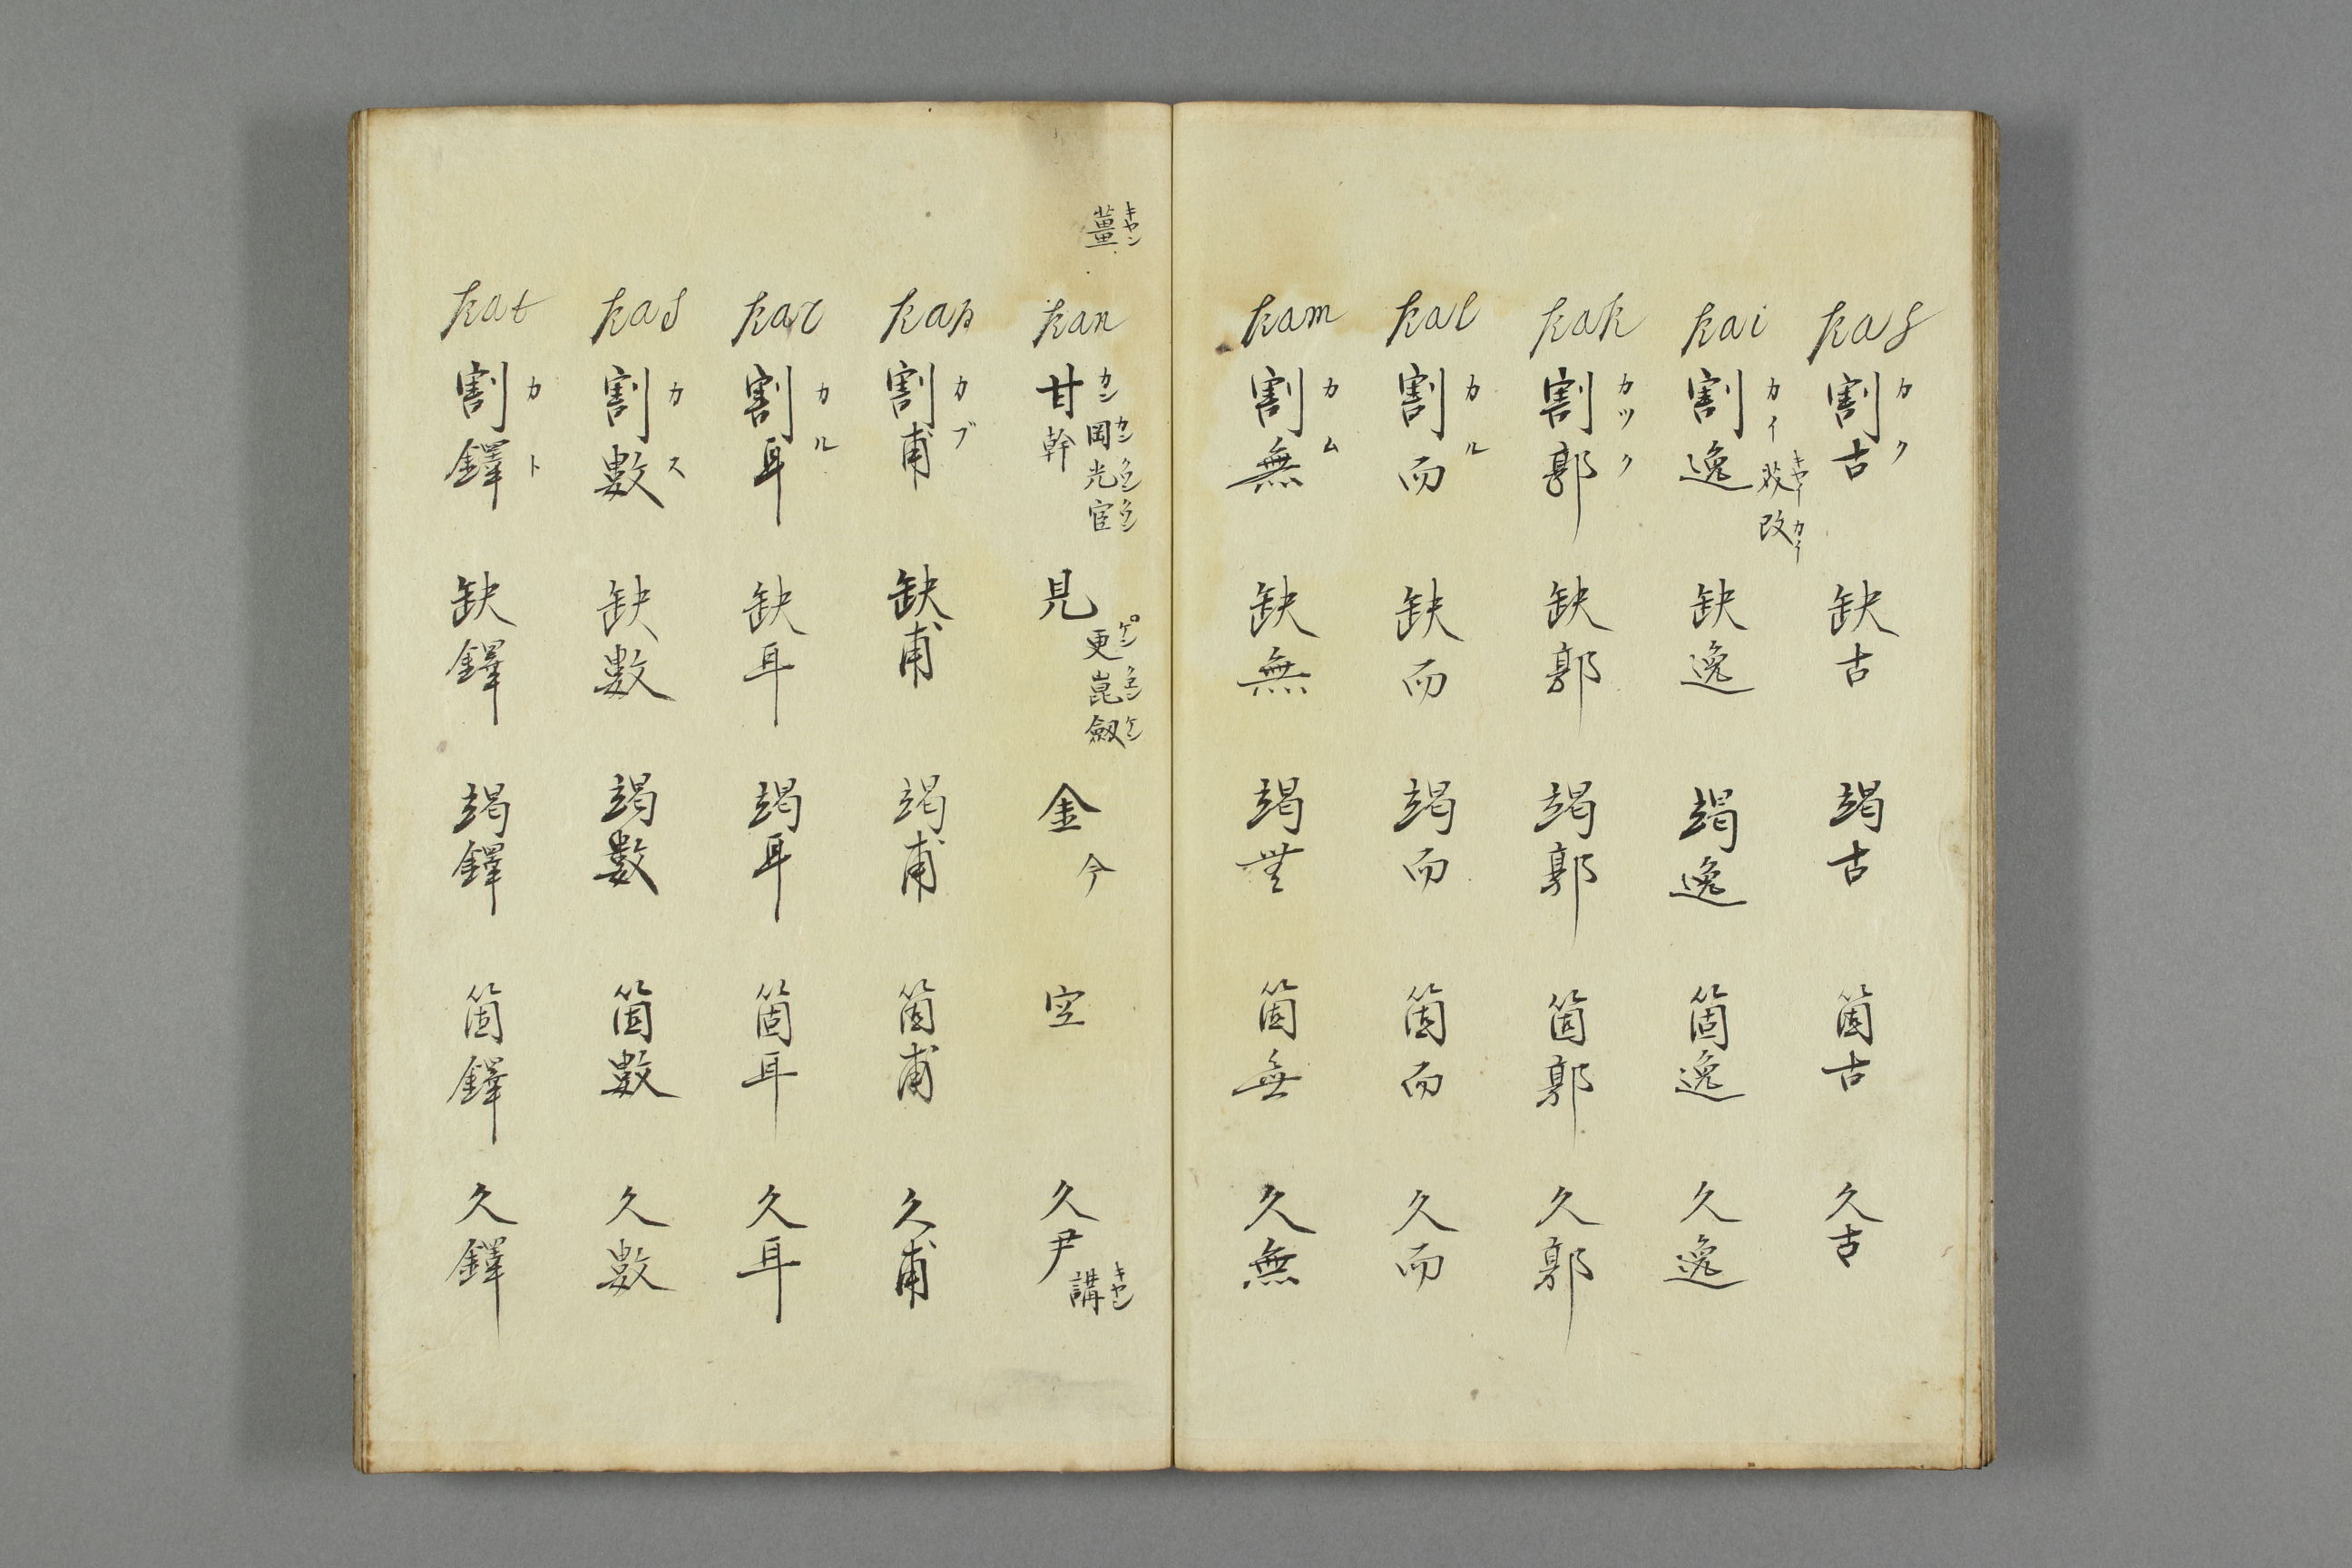 kag 割古 缺古 竭古 箇古 久古
カク
kai 割逸 缺逸 竭逸 箇逸 久逸
カイ
改
カイ
kak 割郭 缺郭 竭郭 箇郭 久郭
カツク
kal 割而 缺而 竭而 箇而 久而
カル
kam 割無 缺無 竭無 箇無 久無
カム
薑
キヤン
kan 甘幹 見 金 空 久尹
カン
岡光官 更崑劔 今 講
カン クワン クワン ケン ケン キヤン
kap 割甫 缺甫 竭甫 箇甫 久甫
カブ
kar 割耳 缺耳 竭耳 箇耳 久耳
カル
kas 割數 缺數 竭數 箇數 久數
カス
kat 割鐸 缺鐸 竭鐸 箇鐸 久鐸
カト